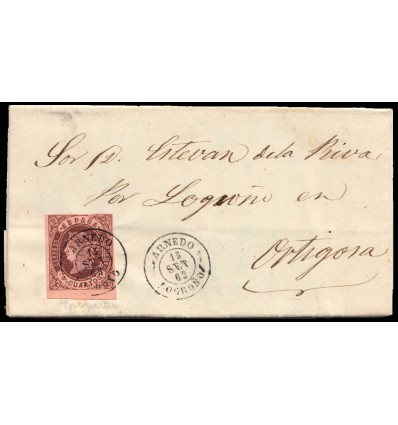 Sor D. Estevan de la Riva
Por Logroño en
Ortigosa
ESPAÑA
4 CUARTOS
ARNEDO
15
SET
62
LOGROÑO
ARNEDO
15
SET
62
LOGROÑO